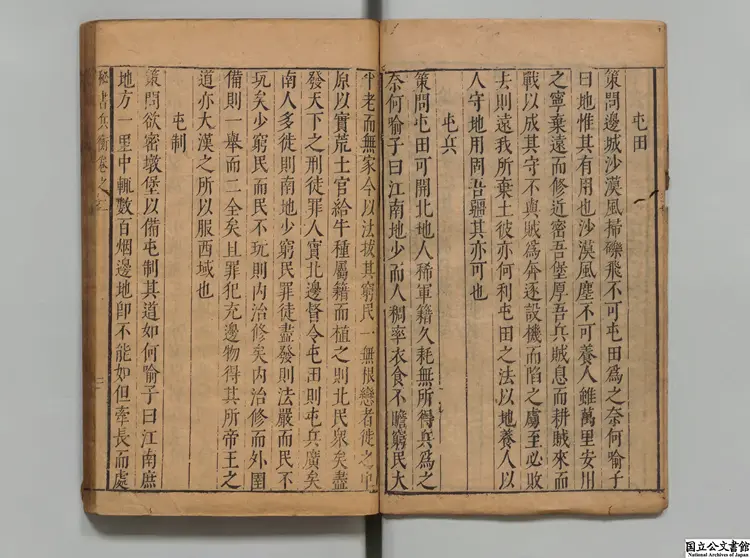 屯田
策問邊城沙漠風掃礫飛不可屯田爲之奈何喻子
曰地惟其有用也沙漠風塵不可養人雖萬里安用
之寧棄遠而修近密吾堡厚吾兵賊息而耕賊來而
戰以成其守不與賊爲奔逐設機而陷之虜至必敗
去則遠我所棄土彼亦何利屯田之法以地養人以
人守地用周吾疆其亦可也
屯兵
策問屯田可開北地人稀軍籍久耗無所得兵爲之
奈何喻子曰江南地少而人稠率衣食不贍窮民大
半老而無家今以法拔其窮民一無根戀者徙之中
原以實荒土官給牛種屬籍而植之則北民衆矣盡
發天下之刑徒罪人實北邊督令屯田則屯兵廣矣
南人多徒則南地少窮民罪徒盡發則法嚴而民不
玩矣少窮民而民不玩則内治修矣内治修而外圉
備則一舉而二全矣且罪犯充邊物得其所帝王之
道亦大漢之所以服西域也
屯制
策問欲密墩堡以備屯制其道如何喻子曰江南庶
地方一里中輒數百烟邊地卽不能如但牽長而處
秘書兵衡卷之二
國立公文書館
National Archives of Japan